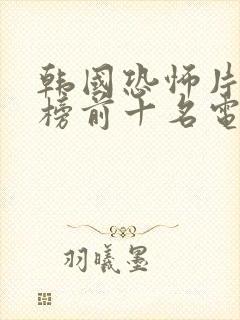 韩国恐怖片
榜前十名电
羽曦墨